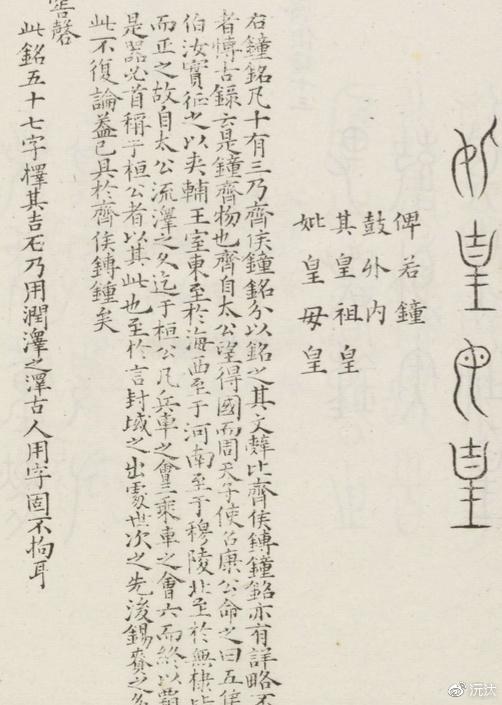 妣皇母皇
俾若鐘
鼓外内
其皇祖皇
妣皇毋皇
右鐘銘凡十有三乃齊侯鐘銘分以銘之其文辭比齊侯鎛鐘銘亦有詳略不
者慱古錄云是鐘齊物也齊自太公望得國而周天子使召康公命之曰五侯
伯汝實征之以夾輔王室東至於海西至于河南至于穆陵北至於無棣比
而正之故自太公流澤之久迄于桓公凡兵車之會三乘車之會六而終以霸
是器必首稱于桓公者以其此也至於言封域之出處世次之先後錫賚之多
此不復論蓋已具於齊侯鎛鍾矣
磬
此銘五十七字擇其吉石乃用潤澤之澤古人用字固不拘耳
沅汰